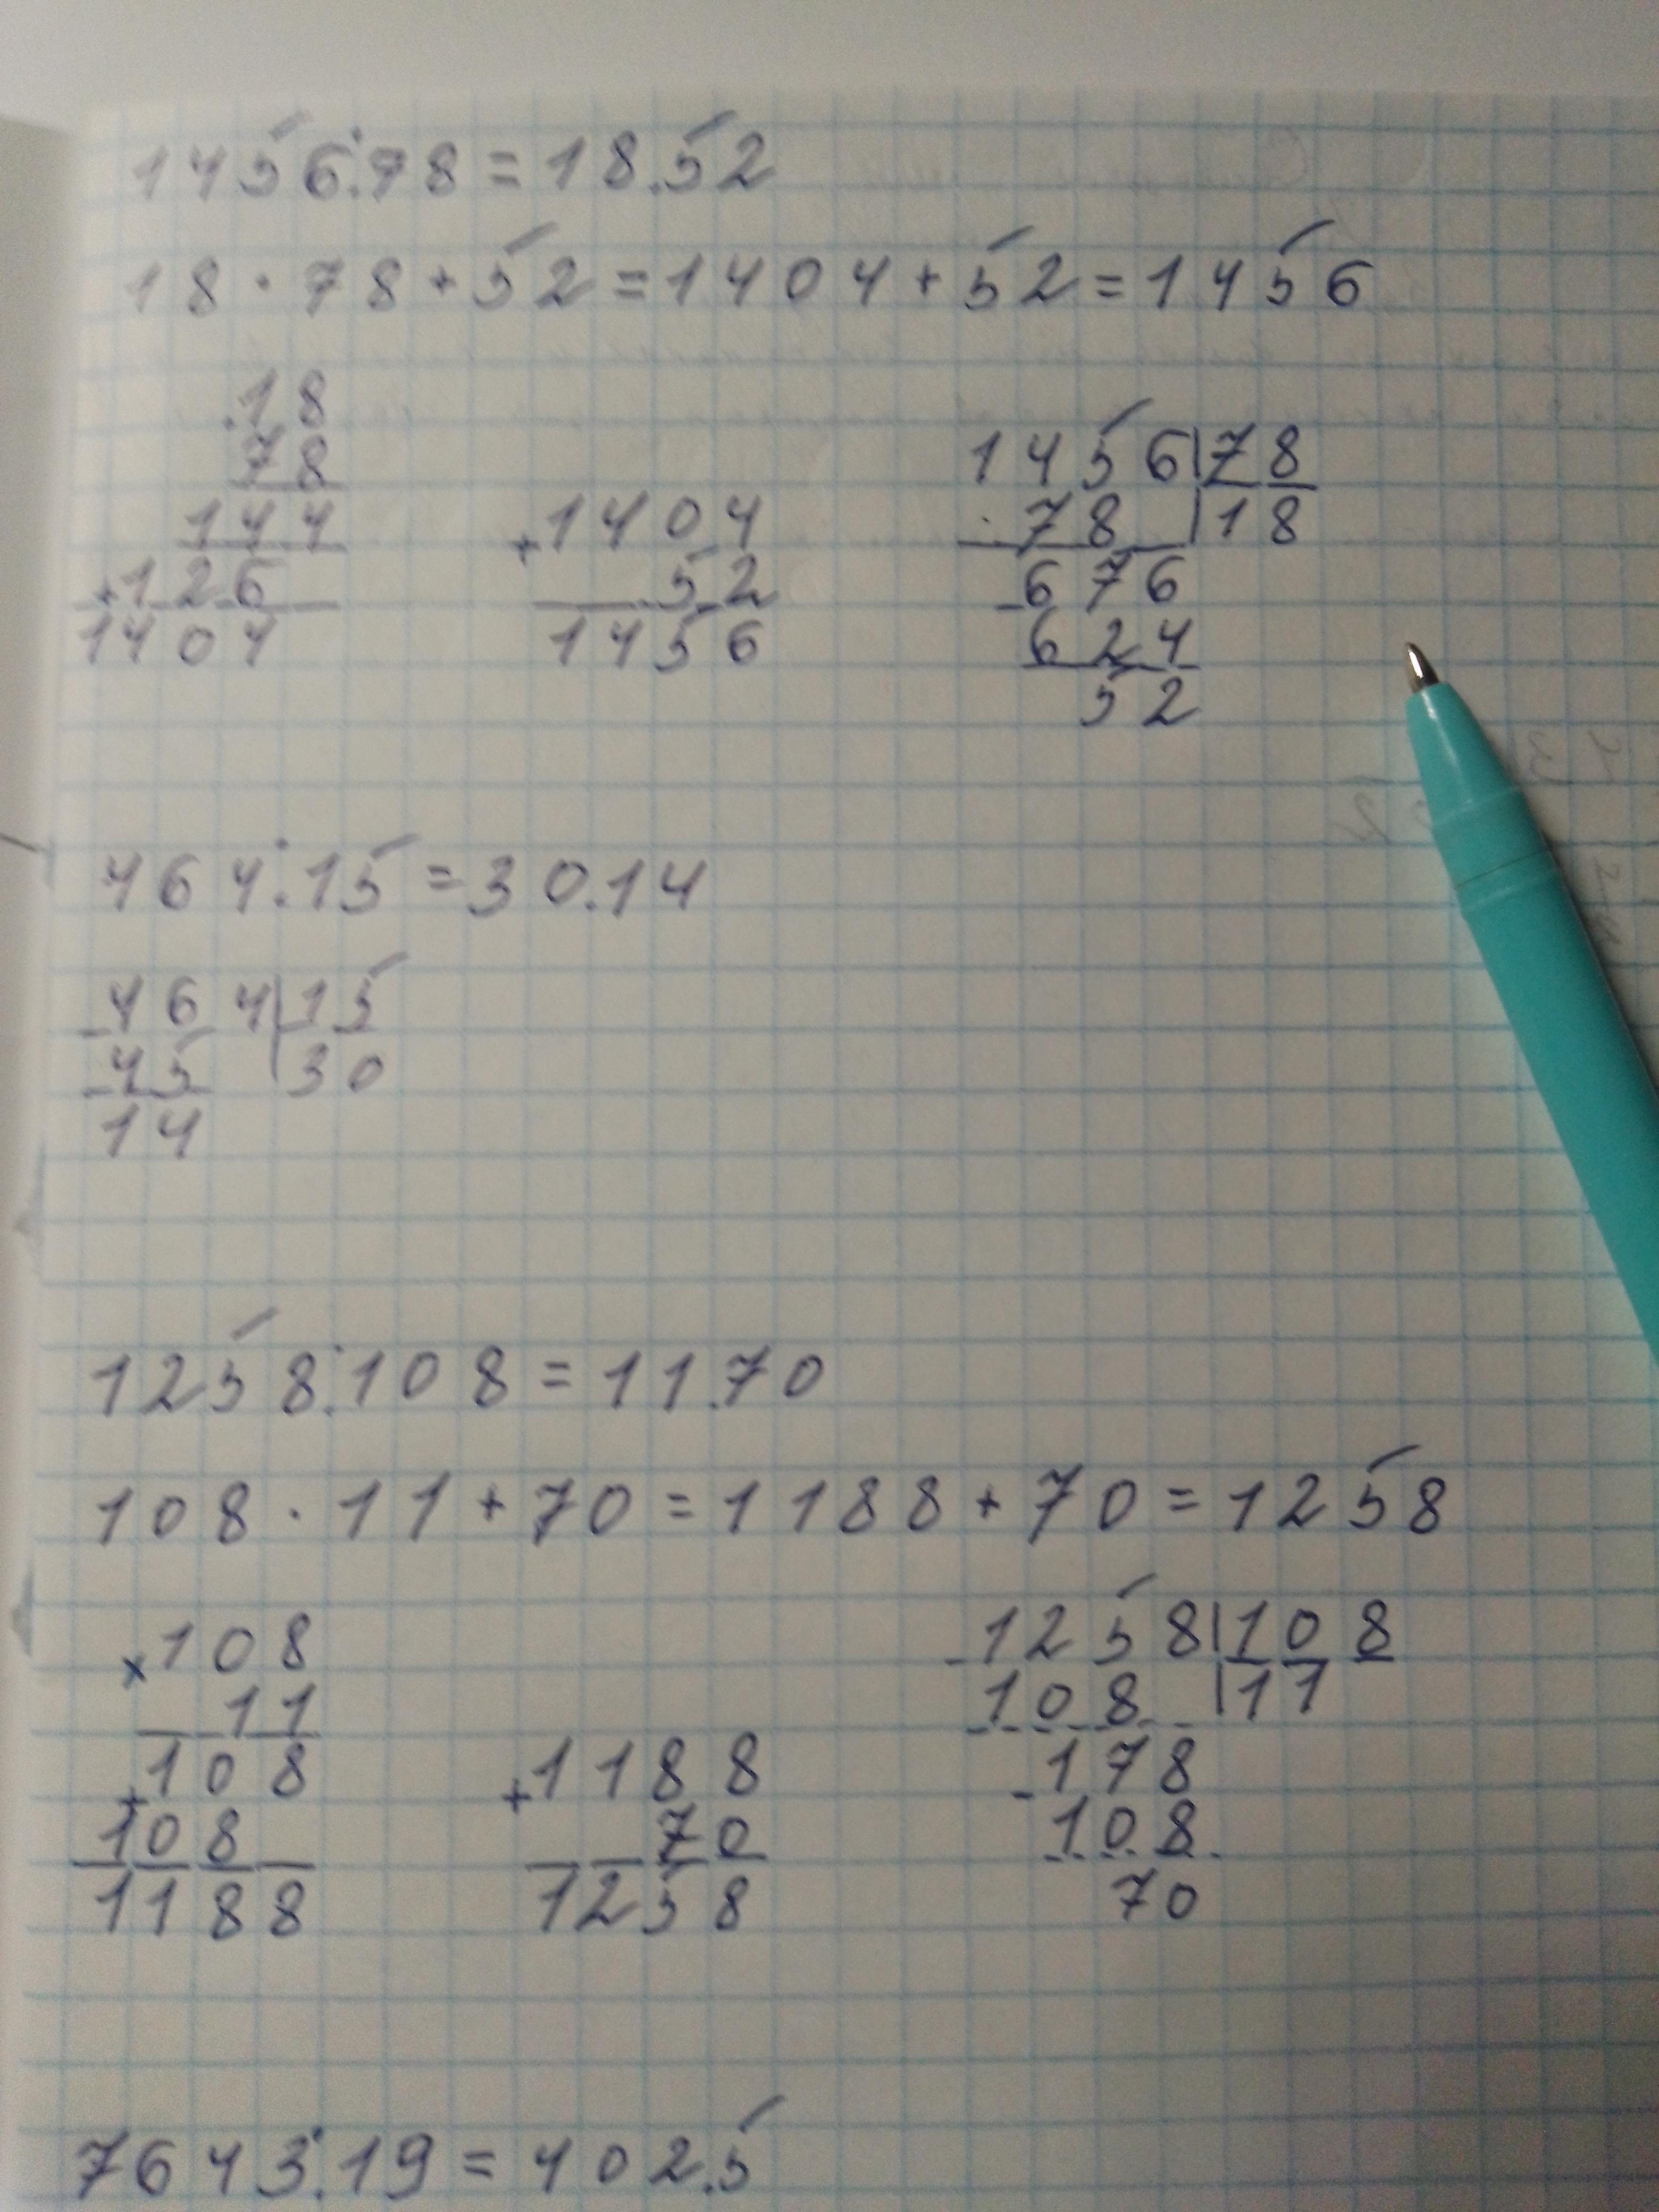 1456:78=18.52
18·78+52=1404+52=1456
.18
78
144
+126
1404
+1404
52
1456
1456|78
78 |18
-676
624
52
464:15=30.14
464|15
45 |30
14
1258:108=11.70
108·11+70=1188+70=1258
×108
11
+108
108
1188
+1188
70
1258
-1258|108
108 |11
-178
108
70
7643:19=402.5